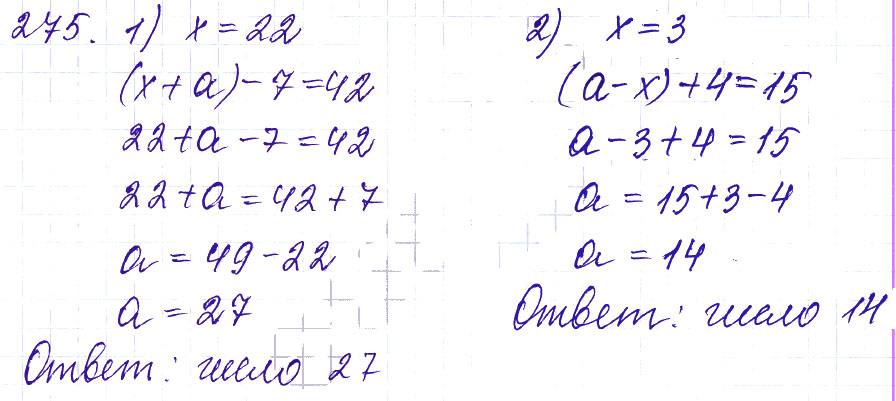 275. 1) x = 22
(x + a) - 7 = 42
22 + a - 7 = 42
22 + a = 42 + 7
a = 49 - 22
a = 27
Ответ: число 27
2) x = 3
(a - x) + 4 = 15
a - 3 + 4 = 15
a = 15 + 3 - 4
a = 14
Ответ: число 14